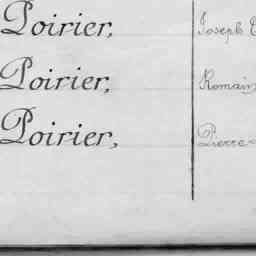 Poirier, Joseph
Poirier, Romain
Poirier, Pierre